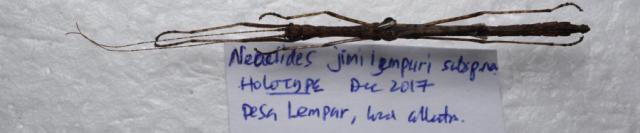 Neoclides jimi lempuri subsp.n.
HOLOTYPE Dec 2017
Desa Lempur,